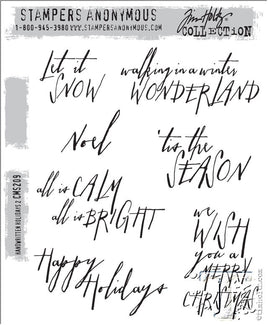 STAMPERS ANONYMOUS
1-800-945-3980 www.STAMPERSANONYMOUS.com
Tim Holtz
COLLECTION
Let it
SNOW
walking in a winter
WONDERLAND
Noel
'tis the
SEASON
all is CALM
all is BRIGHT
we
WISH
you a
MERRY
CHRISTMAS
Happy
Holidays
HANDWRITTEN HOLIDAYS 2 CMS209